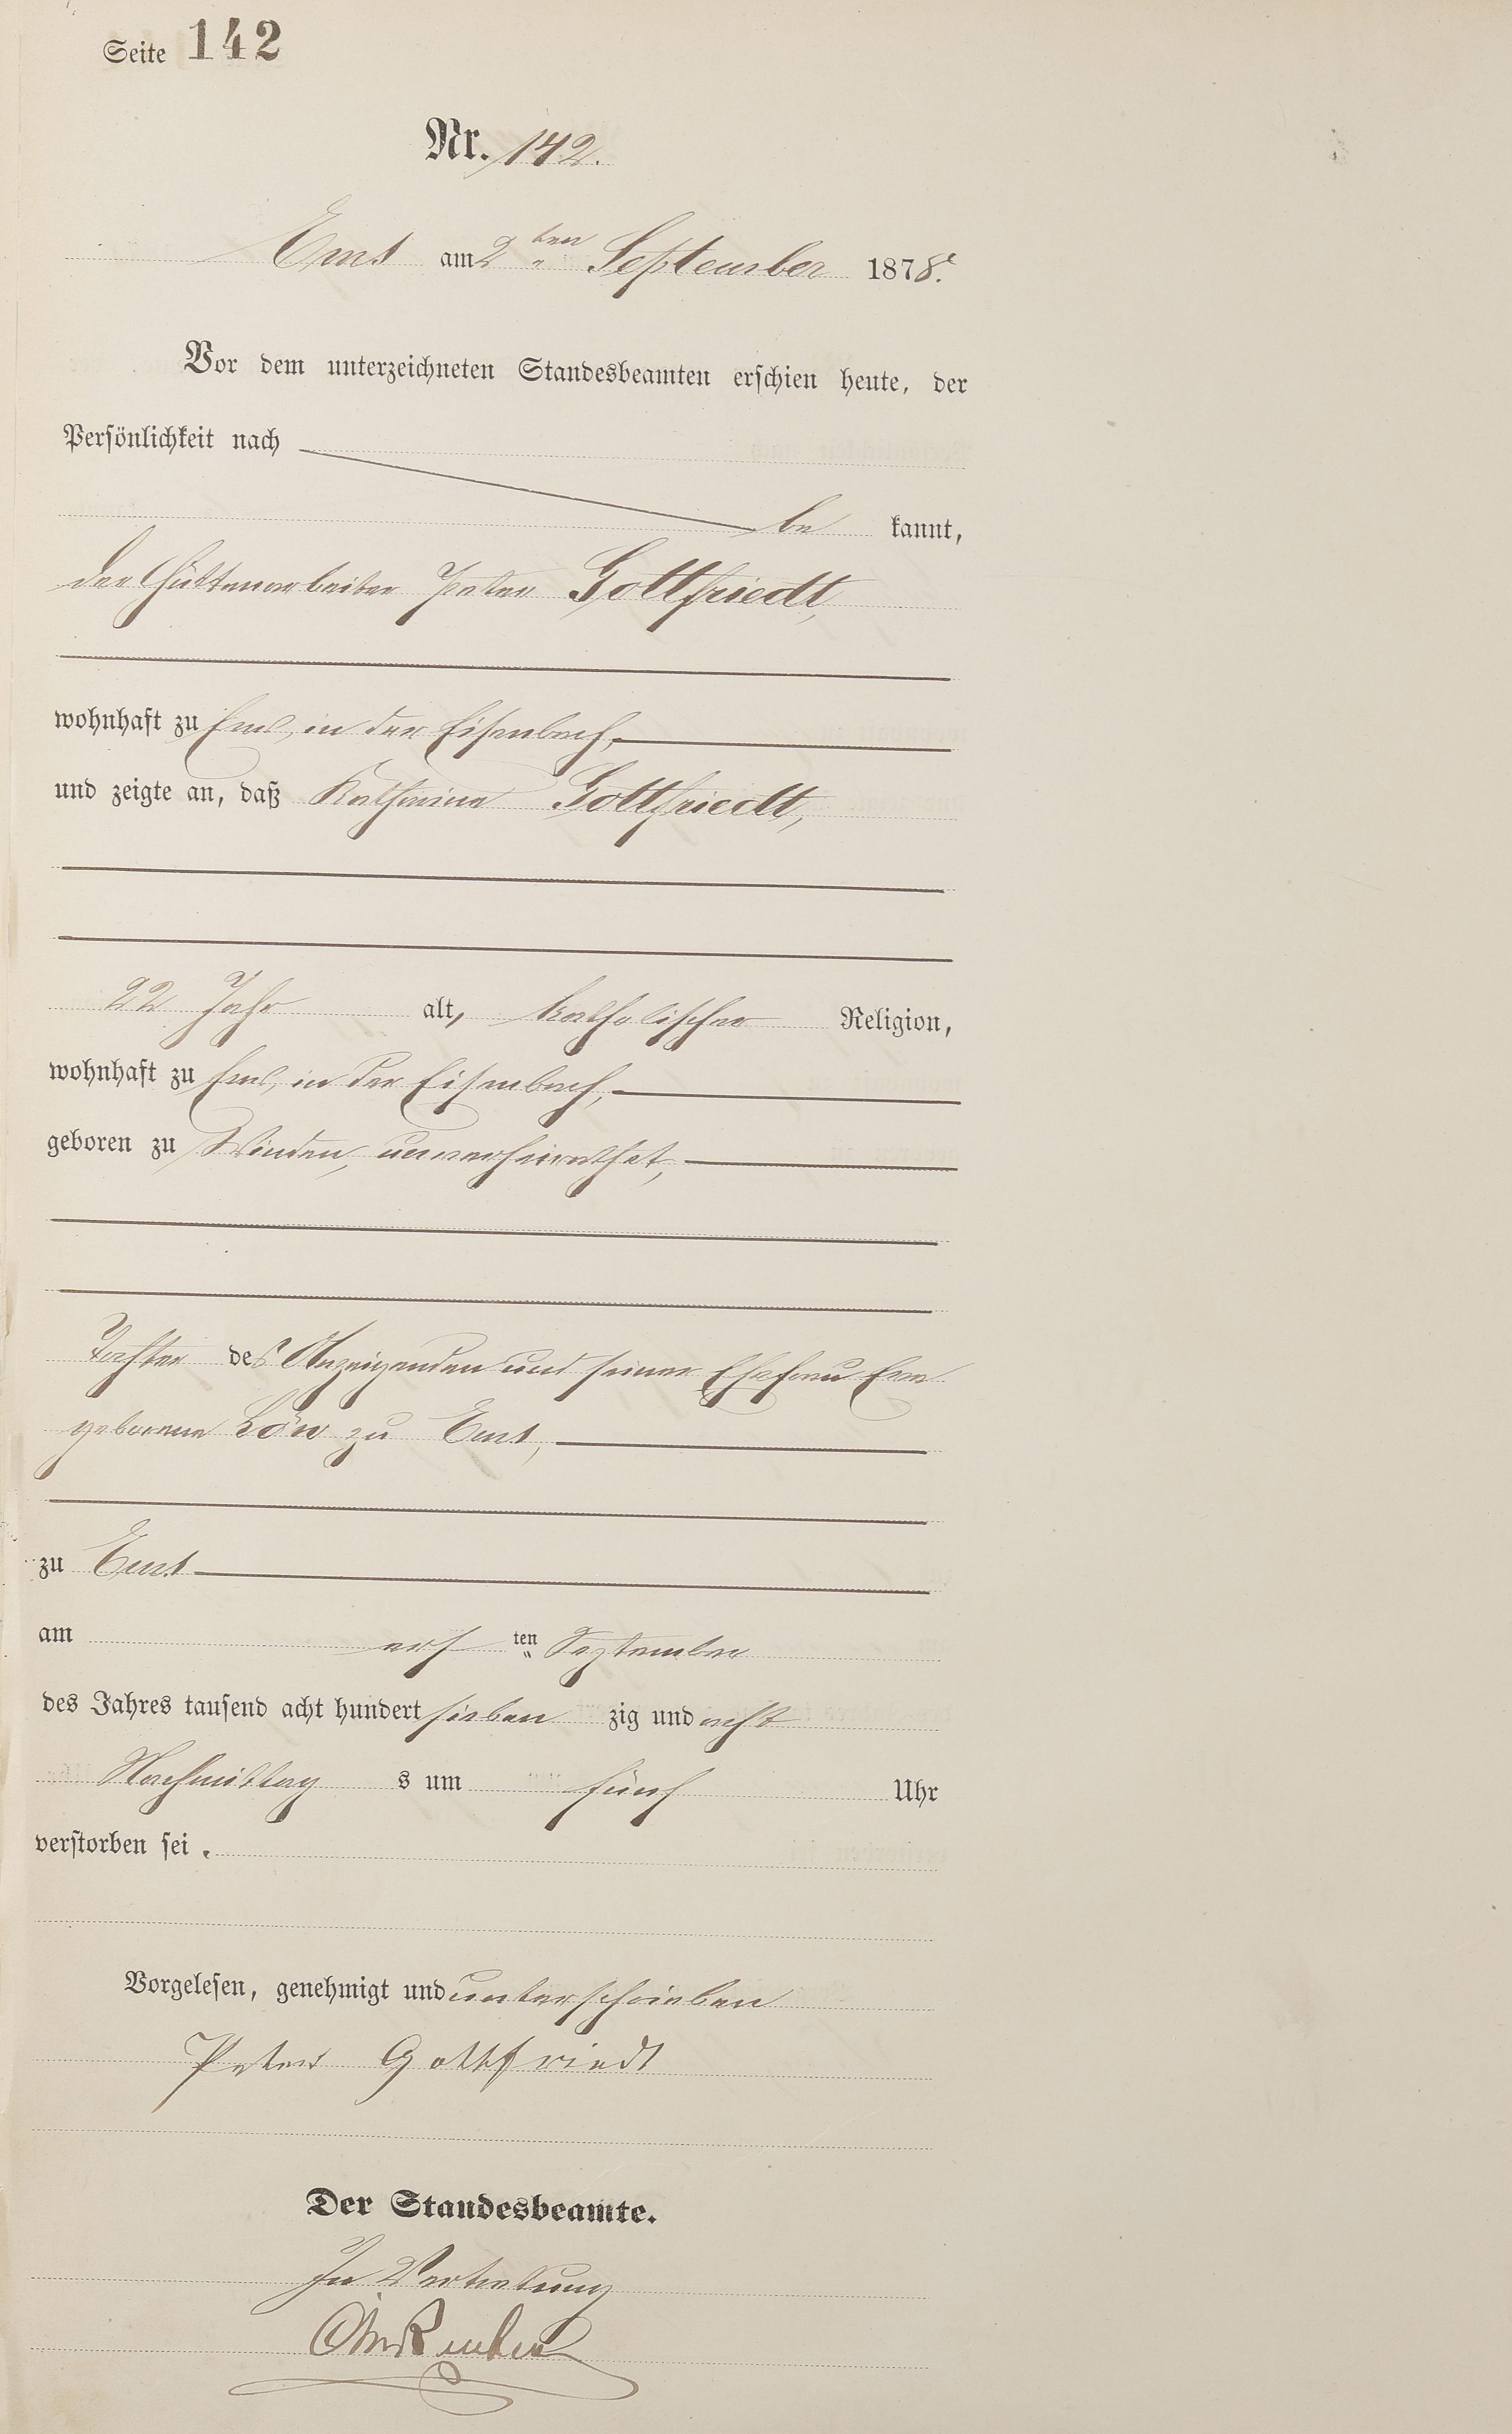 Seite 142
Nr. 142.
Ems am 2 ten September 1878.
Vor dem unterzeichneten Standesbeamten erschien heute, der
Persönlichkeit nach
be kannt,
der Hüttenarbeiter Peter Gottfriedt,
wohnhaft zu Ems, in der Eisenbach,
und zeigte an, daß Katharina Gottfriedt,
22 Jahr alt, katholischer Religion,
wohnhaft zu Ems, in der Eisenbach,
geboren zu Winden, unverheirathet,
Tochter des Anzeigenden und seiner Ehefrau Eva
geborene Löw zu Ems,
zu Ems
am ers ten September
des Jahres tausend acht hundert sieben zig und acht
Nachmittag s um fünf Uhr
verstorben sei.
Vorgelesen, genehmigt und unterschrieben
Peter Gottfriedt
Der Standesbeamte.
In Vertretung